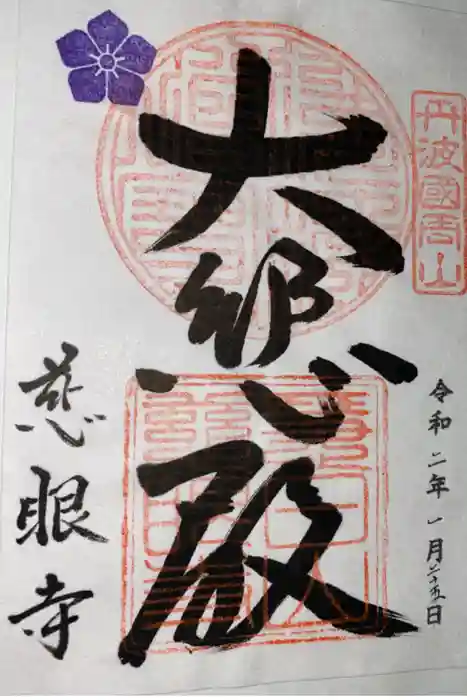 丹波國周山
大悲殿
令和二年一月二十五日
慈眼寺